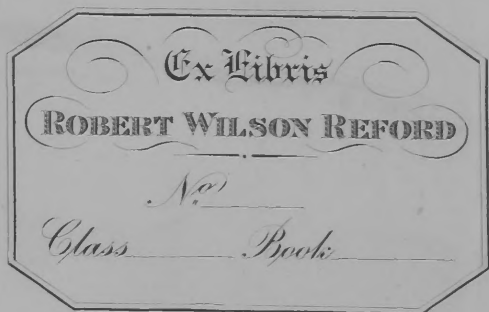 Ex Libris
ROBERT WILSON REFORD
No.
Class Book